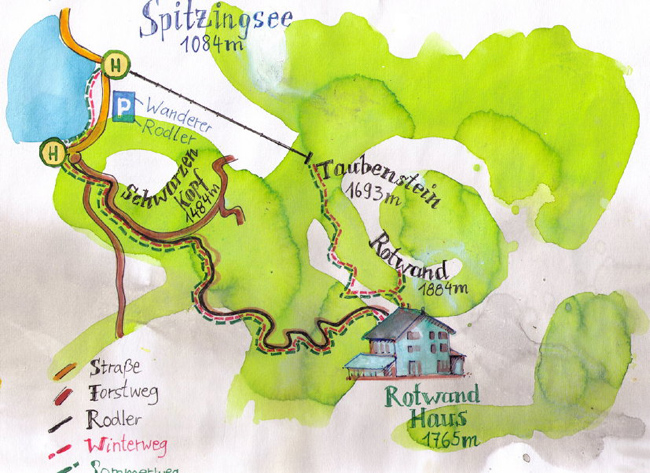 Spitzingsee
1084m
H
P
Wanderer
Rodler
H
Schwarzen
Kopf
1484m
Taubenstein
1693m
Rotwand
1884m
Rotwand
Haus
1765m
Straße
Forstweg
Rodler
Winterweg
Sommerweg